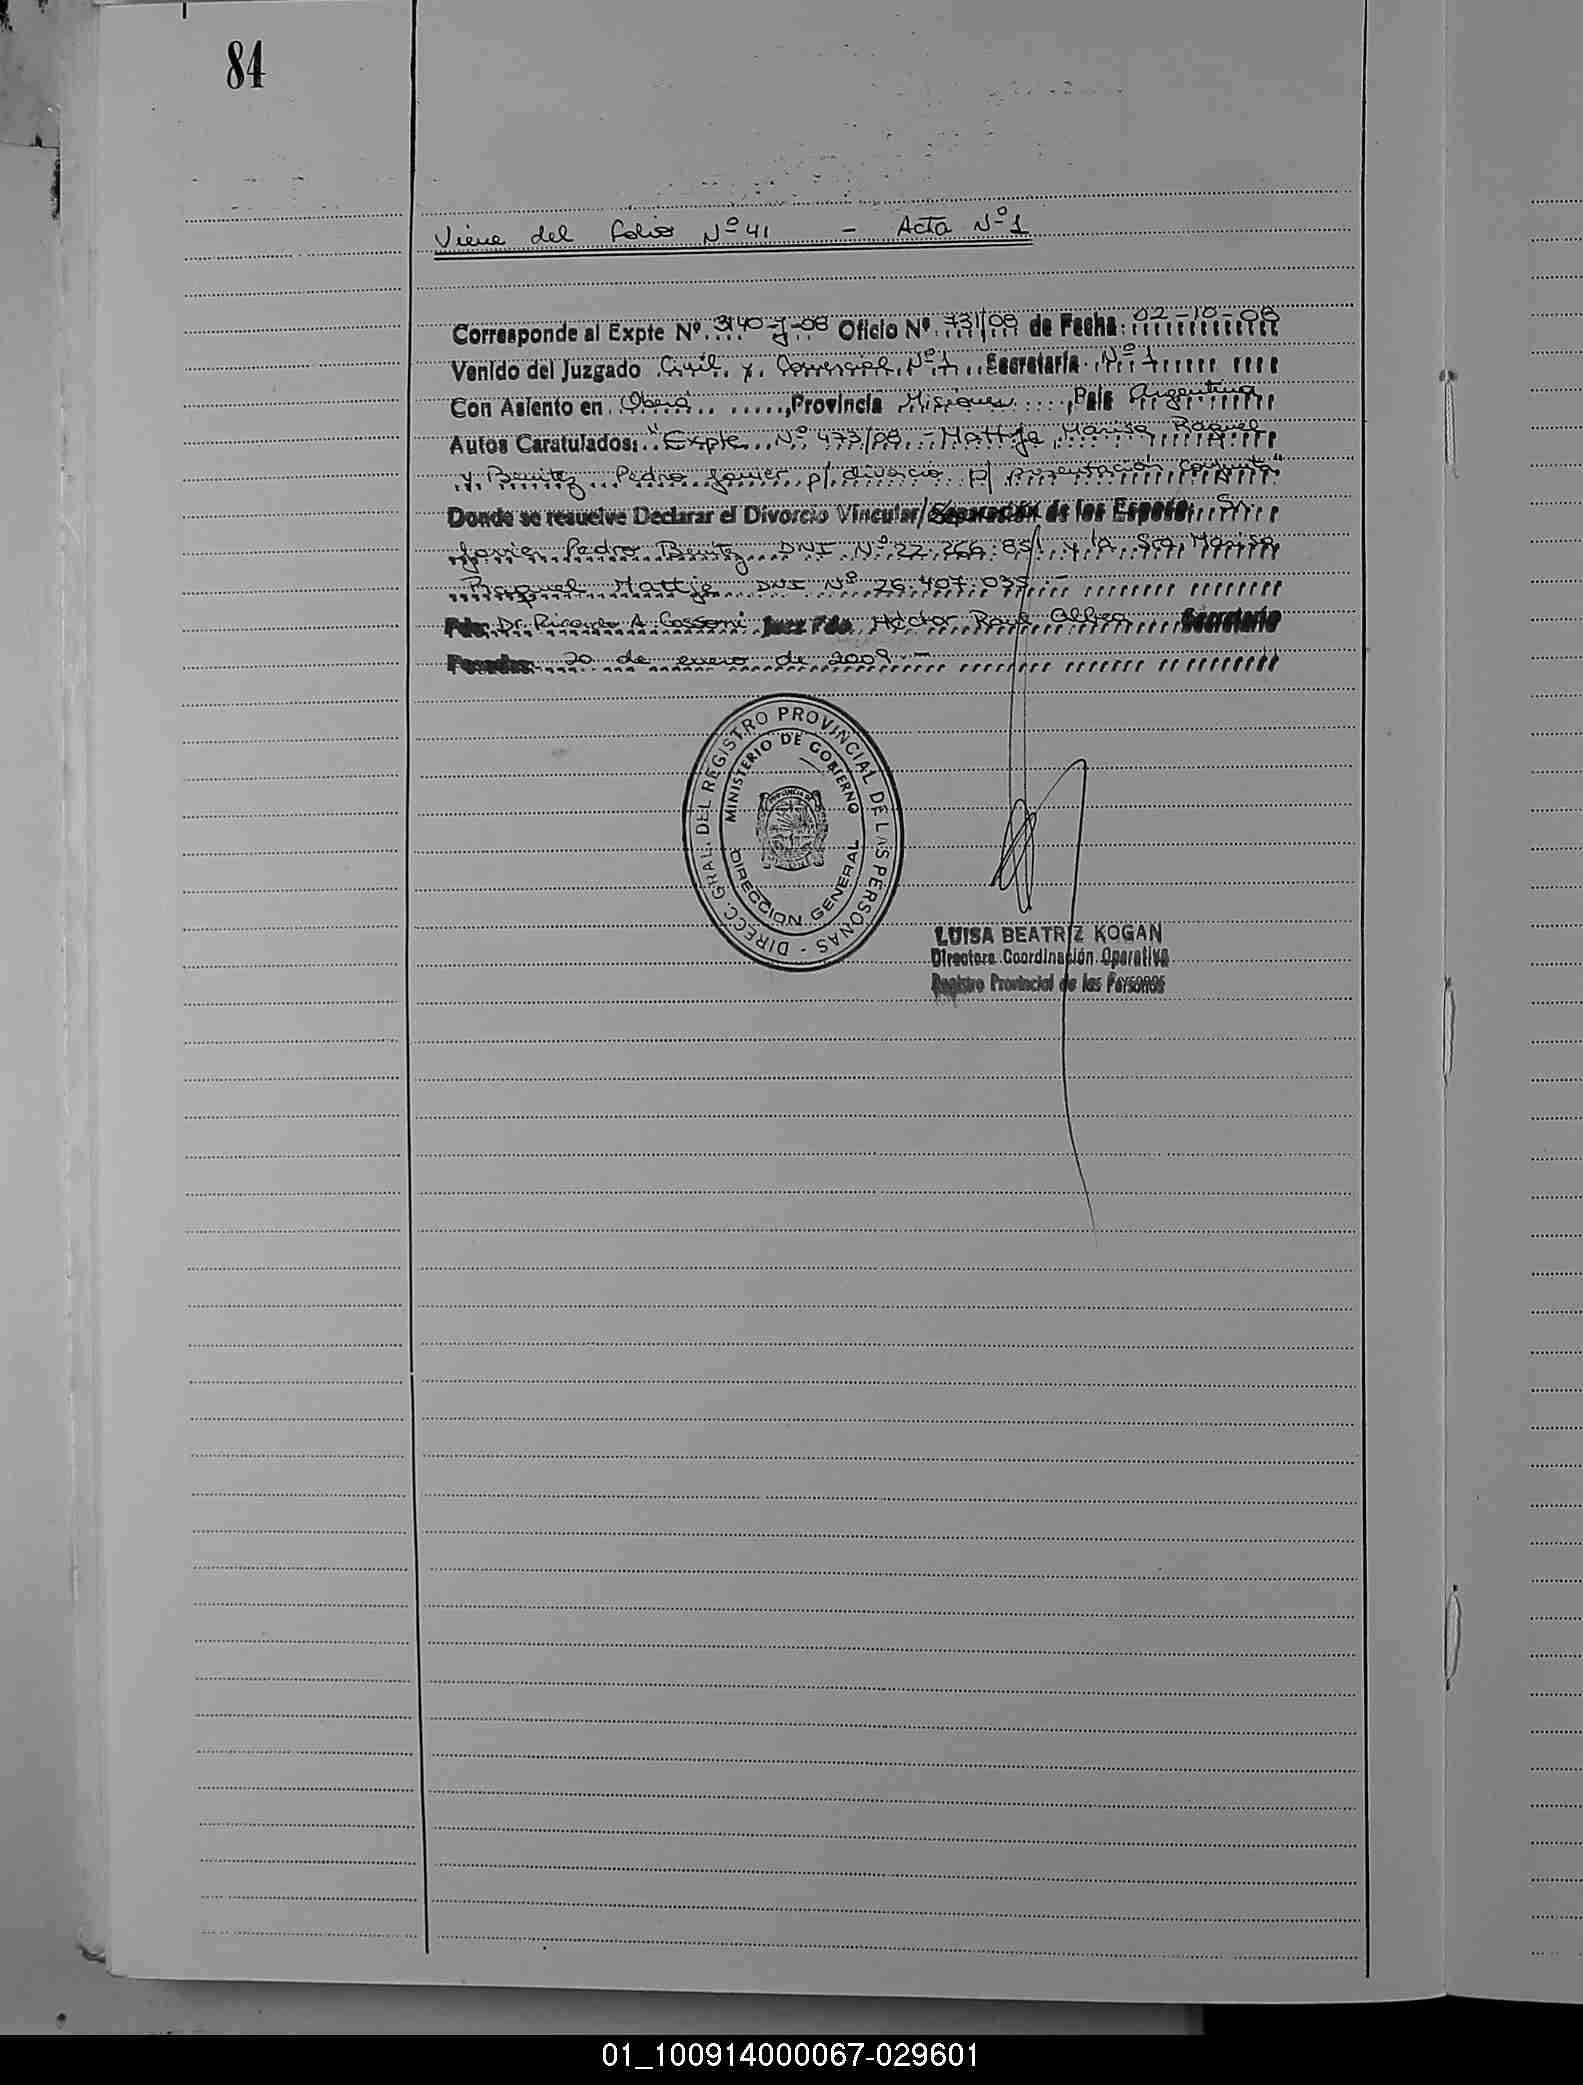 84
Viene del folio Nº 41 - Acta Nº 1
Corresponde al Expte Nº. 3140-J-08 Oficio Nº. 731/08 de Fecha: 02-10-08
Venido del Juzgado Civil y Comercial Nº 1 Secretaría Nº 1
Con Asiento en Oberá, Provincia Misiones, País Argentina
Autos Caratulados: "Expte Nº 473/08 - Mattje Marisa Raquel
y Benitez Pedro Javier p/ divorcio p/ presentación conjunta"
Donde se resuelve Declarar el Divorcio Vincular/Separación de los Esposos: Sr.
Javier Pedro Benitez DNI Nº 22.266.851 y la Sra Marisa
Raquel Mattje DNI Nº 26.407.035.-
Fdo: Dr. Ricardo A. Cassoni Juez Fdo. Héctor Raúl Secretario
Posadas: 20 de enero de 2009.-
DIRECC. GRAL. DEL REGISTRO PROVINCIAL DE LAS PERSONAS -
MINISTERIO DE GOBIERNO
DIRECCION GENERAL
LUISA BEATRIZ KOGAN
Directora Coordinación Operativa
Registro Provincial de las Personas
01_100914000067-029601